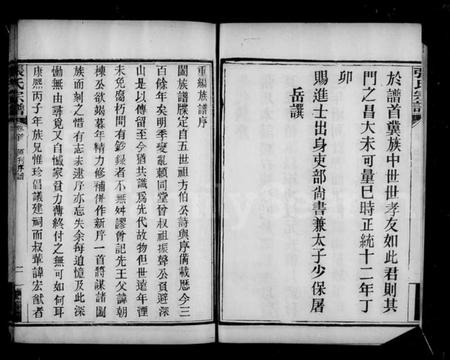 於譜首冀族中世世孝友如此君則其
門之昌大未可量巳時正統十二年丁
卯
賜進士出身吏部尚書兼太子少保屠
岳譔
重編族譜序
闔族譜牒定自五世祖方伯公詩與序備載歷今三
百餘年矣明季變亂賴同堂曾叔祖振聲公負避深
山是以傳留至今猶共識為先代故物但世遠年湮
未免腐朽間有鈔錄者不無舛謬曾記先王父諱朝
棟公欲竭暮年精力修補併作新序一首將謀諸闔
族而剞之惜有志未逮序亦忘失余每追憶及此深
慟無由尋覓又自憾家貧力薄終付之無可如何耳
康熙丙子年族兄惟珍倡議建祠而叔華諱宏猷者
張氏宗譜
張氏宗譜